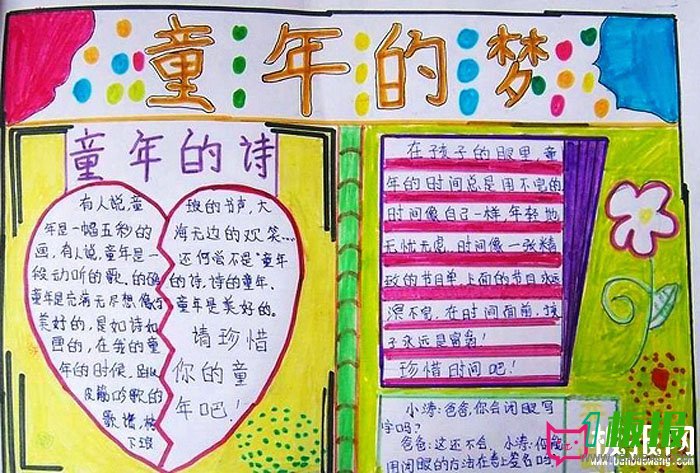 童年的梦
童年的诗
有人说,童
年是一幅五彩的
画,有人说,童年是一
段动听的歌。的确
童年是充满无尽想像
美好的,是如诗如
画的,在我的童
年的时候,
歌谣,
下
班的书声,大
海无边的欢笑…
还何尝不是童年
的诗,诗的童年。
童年是美好的。
请珍惜
你的童
年吧!
在孩子的眼里,童
年的时间总是用不完的
时间像自己一样,年轻地
无忧无虑,时间像一张精
致的节目单,上面的节目永远
演不完,在时间面前,孩
子永远是富翁!
珍惜时间吧!
小涛:爸爸,你会闭眼写
字吗?
爸爸:这还不会,小涛:你能
用闭眼的方法在卷上签名吗